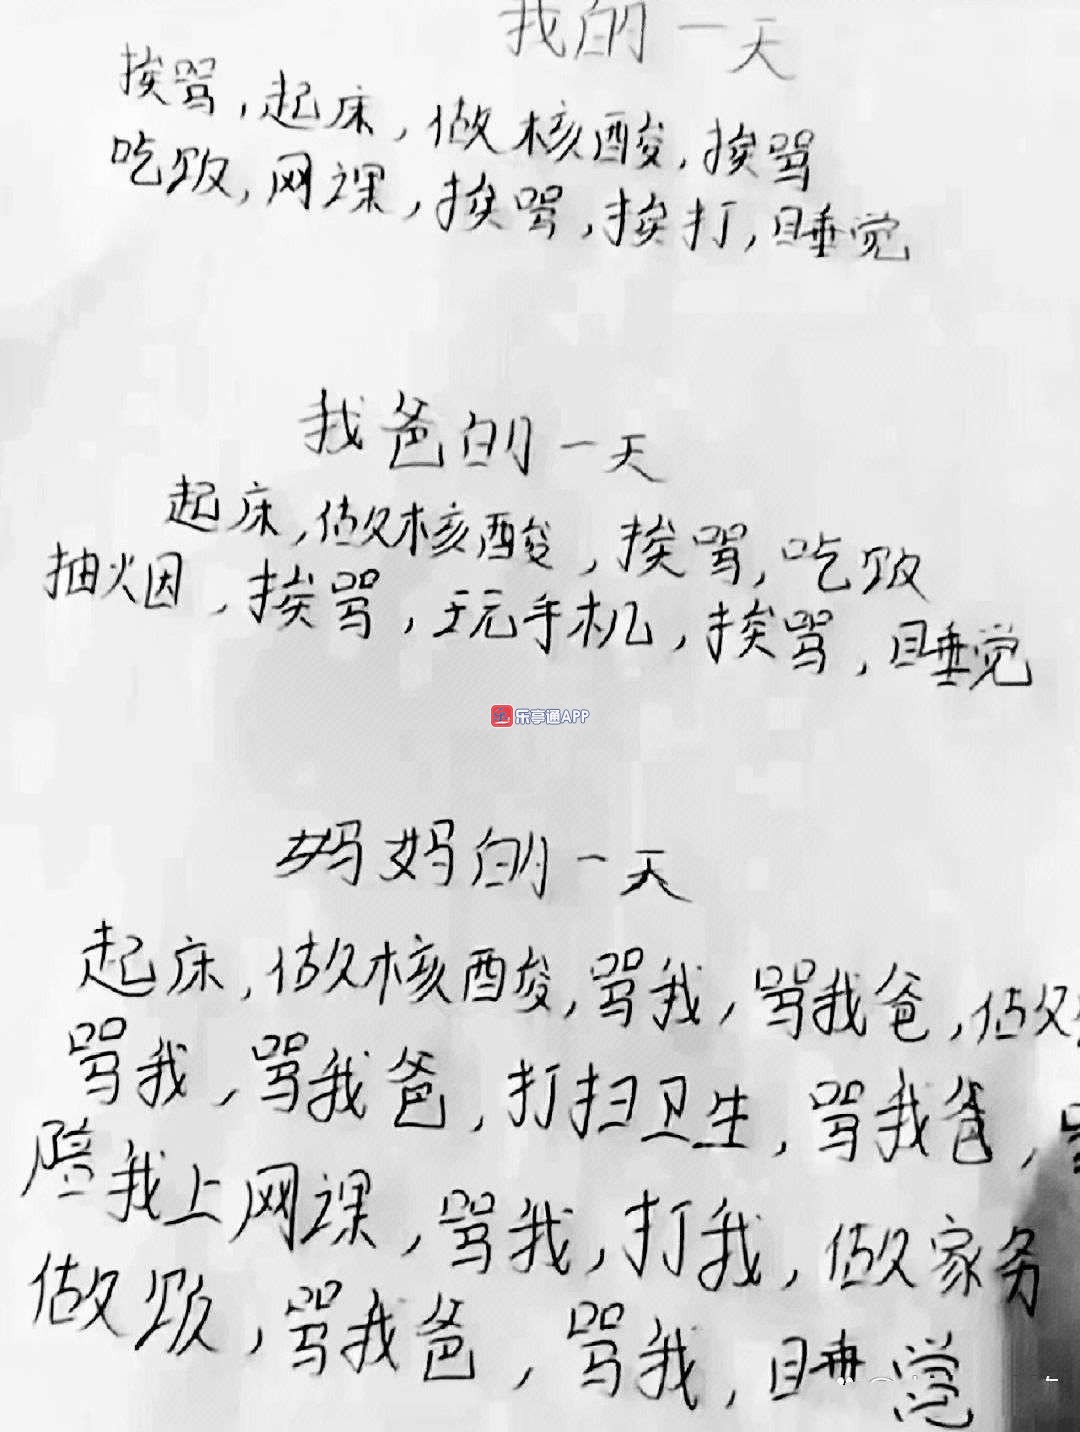 我的一天
挨骂,起床,做核酸,挨骂
吃饭,网课,挨骂,挨打,睡觉
我爸的一天
起床,做核酸,挨骂,吃饭
抽烟,挨骂,玩手机,挨骂,睡觉
乐享通APP
妈妈的一天
起床,做核酸,骂我,骂我爸,做
骂我,骂我爸,打扫卫生,骂我爸,
陪我上网课,骂我,打我,做家务
做饭,骂我爸,骂我,睡觉